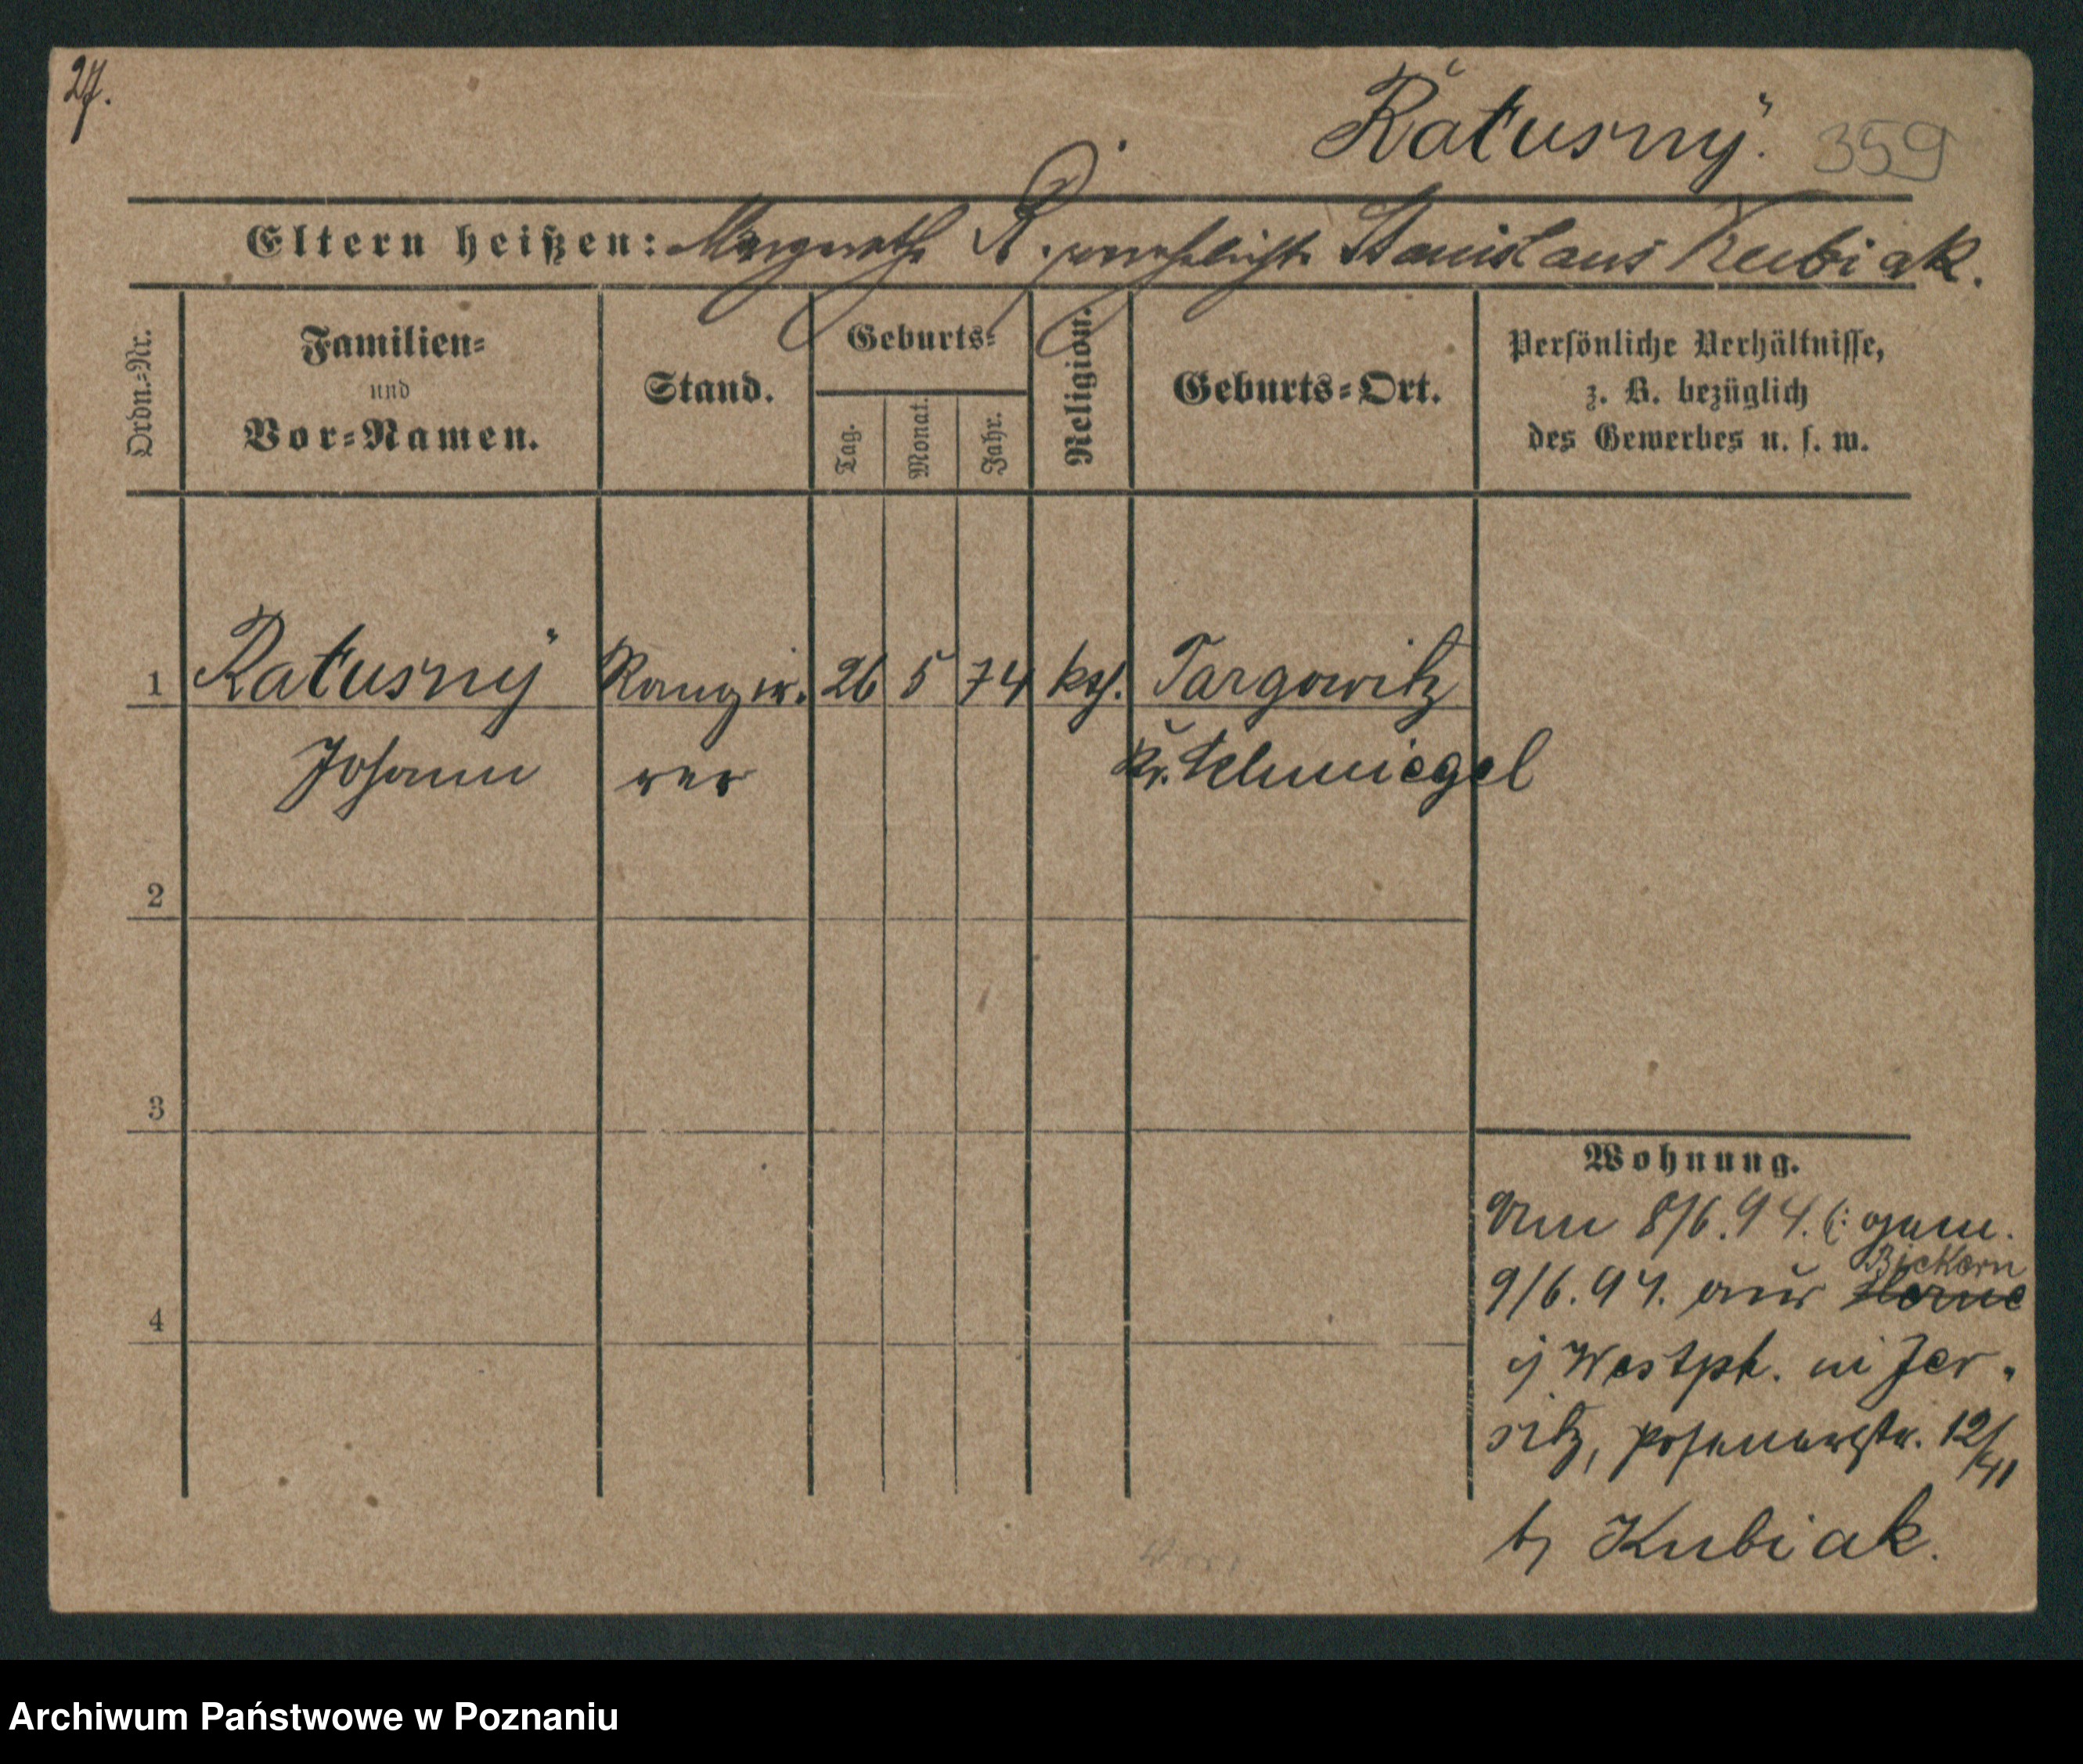 27.
Ratusny. 359
Eltern heißen: Margarethe R. verehelichte Stanislaus Kubiak.
Ordn.=Nr. Familien= und Vor=Namen. Stand. Geburts= Tag. Monat. Jahr. Religion. Geburts=Ort. Persönliche Verhältnisse, z. B. bezüglich des Gewerbes u. s. w.
1 Ratusny Rangir. 26 5 74 kth. Targowitz
Johann rer Kr. Schmiegel
2
3
4
Wohnung.
Am 8/6.94. (: gem.
Bickern
9/6.94. aus Herne
i/ Westph. in Jer-
sitz, Posenerstr. 12/41
b/ Kubiak.
Archiwum Państwowe w Poznaniu